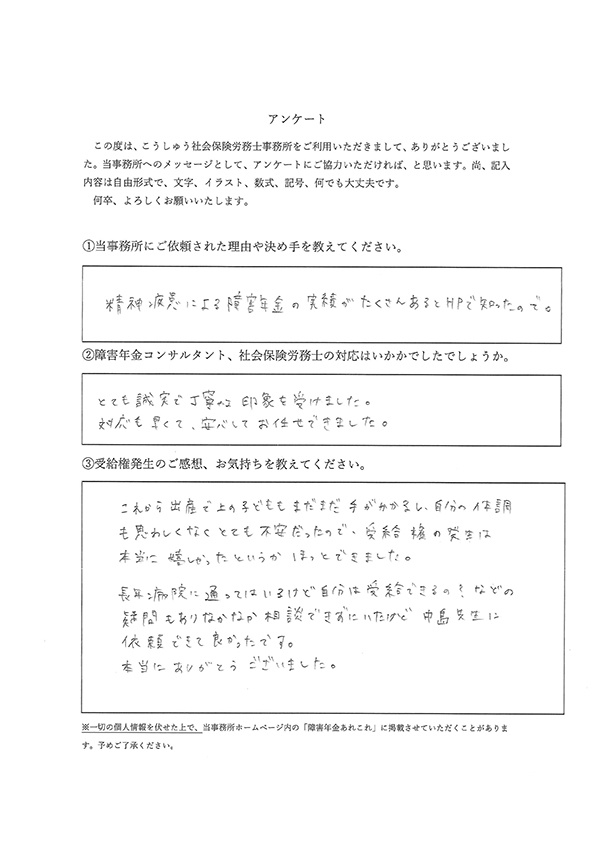 アンケート
この度は、こうしゅう社会保険労務士事務所をご利用いただきまして、ありがとうございまし
た。当事務所へのメッセージとして、アンケートにご協力いただければ、と思います。尚、記入
内容は自由形式で、文字、イラスト、数式、記号、何でも大丈夫です。
何卒、よろしくお願いいたします。
①当事務所にご依頼された理由や決め手を教えてください。
精神疾患による障害年金の実績がたくさんあるとHPで知ったので。
②障害年金コンサルタント、社会保険労務士の対応はいかかでしたでしょうか。
とても誠実で丁寧な印象を受けました。
対応も早くて、安心してお任せできました。
③受給権発生のご感想、お気持ちを教えてください。
これから出産で上の子どももまだまだ手がかかるし、自分の体調
も思わしくなくとても不安だったので、受給権の発生は
本当に嬉しかったというかほっとできました。
長年病院に通ってはいるけど自分は受給できるの？などの
疑問もありなかなか相談できずにいたけど中島先生に
依頼できて良かったです。
本当にありがとうございました。
※一切の個人情報を伏せた上で、当事務所ホームページ内の「障害年金あれこれ」に掲載させていただくことがありま
す。予めご了承ください。